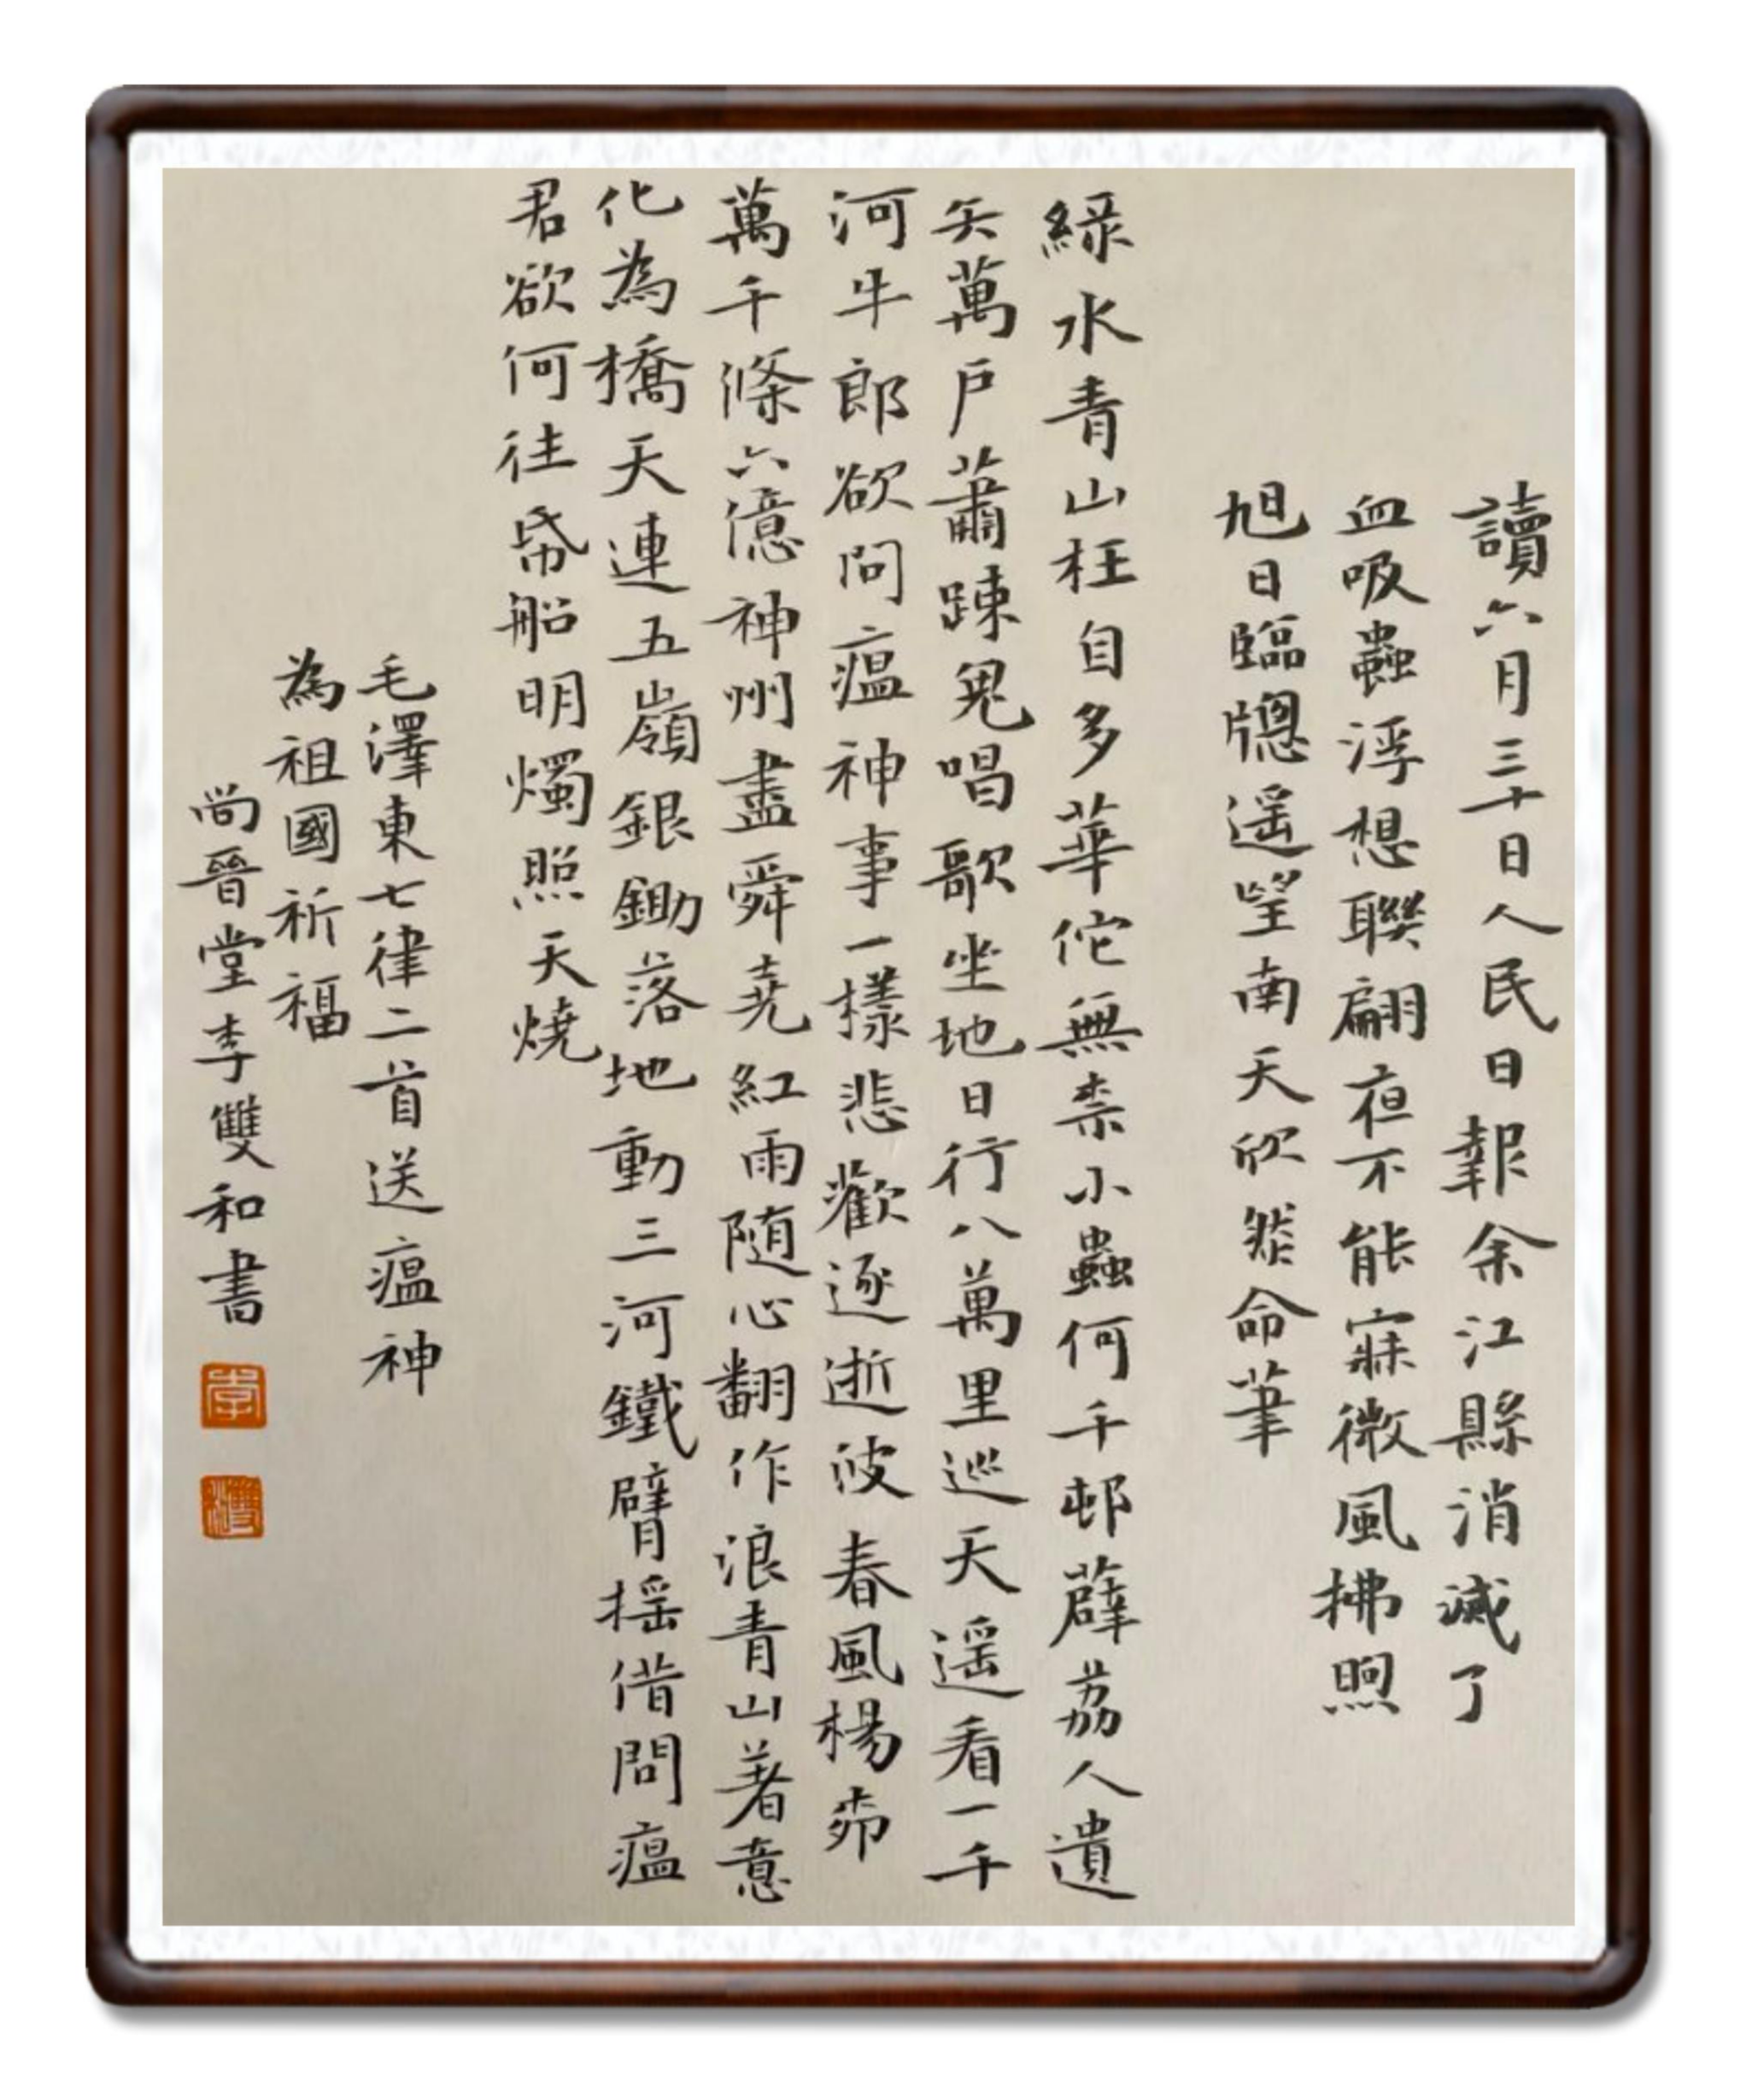 讀六月三十日人民日報余江縣消滅了
血吸蟲浮想聯翩夜不能寐微風拂煦
旭日臨牕遥望南天欣然命筆
綠水青山枉自多華佗無柰小蟲何千邨薜荔人遺
矢萬戶蕭踈鬼唱歌坐地日行八萬里巡天遥看一千
河牛郎欲問瘟神事一樣悲歡逐逝波春風楊桺
萬千條六億神州盡舜堯紅雨随心翻作浪青山著意
化為橋天連五嶺銀鋤落地動三河鐵臂揺借問瘟
君欲何往帋船明燭照天燒
毛澤東七律二首送瘟神
為祖國祈福
尚晉堂李雙和書